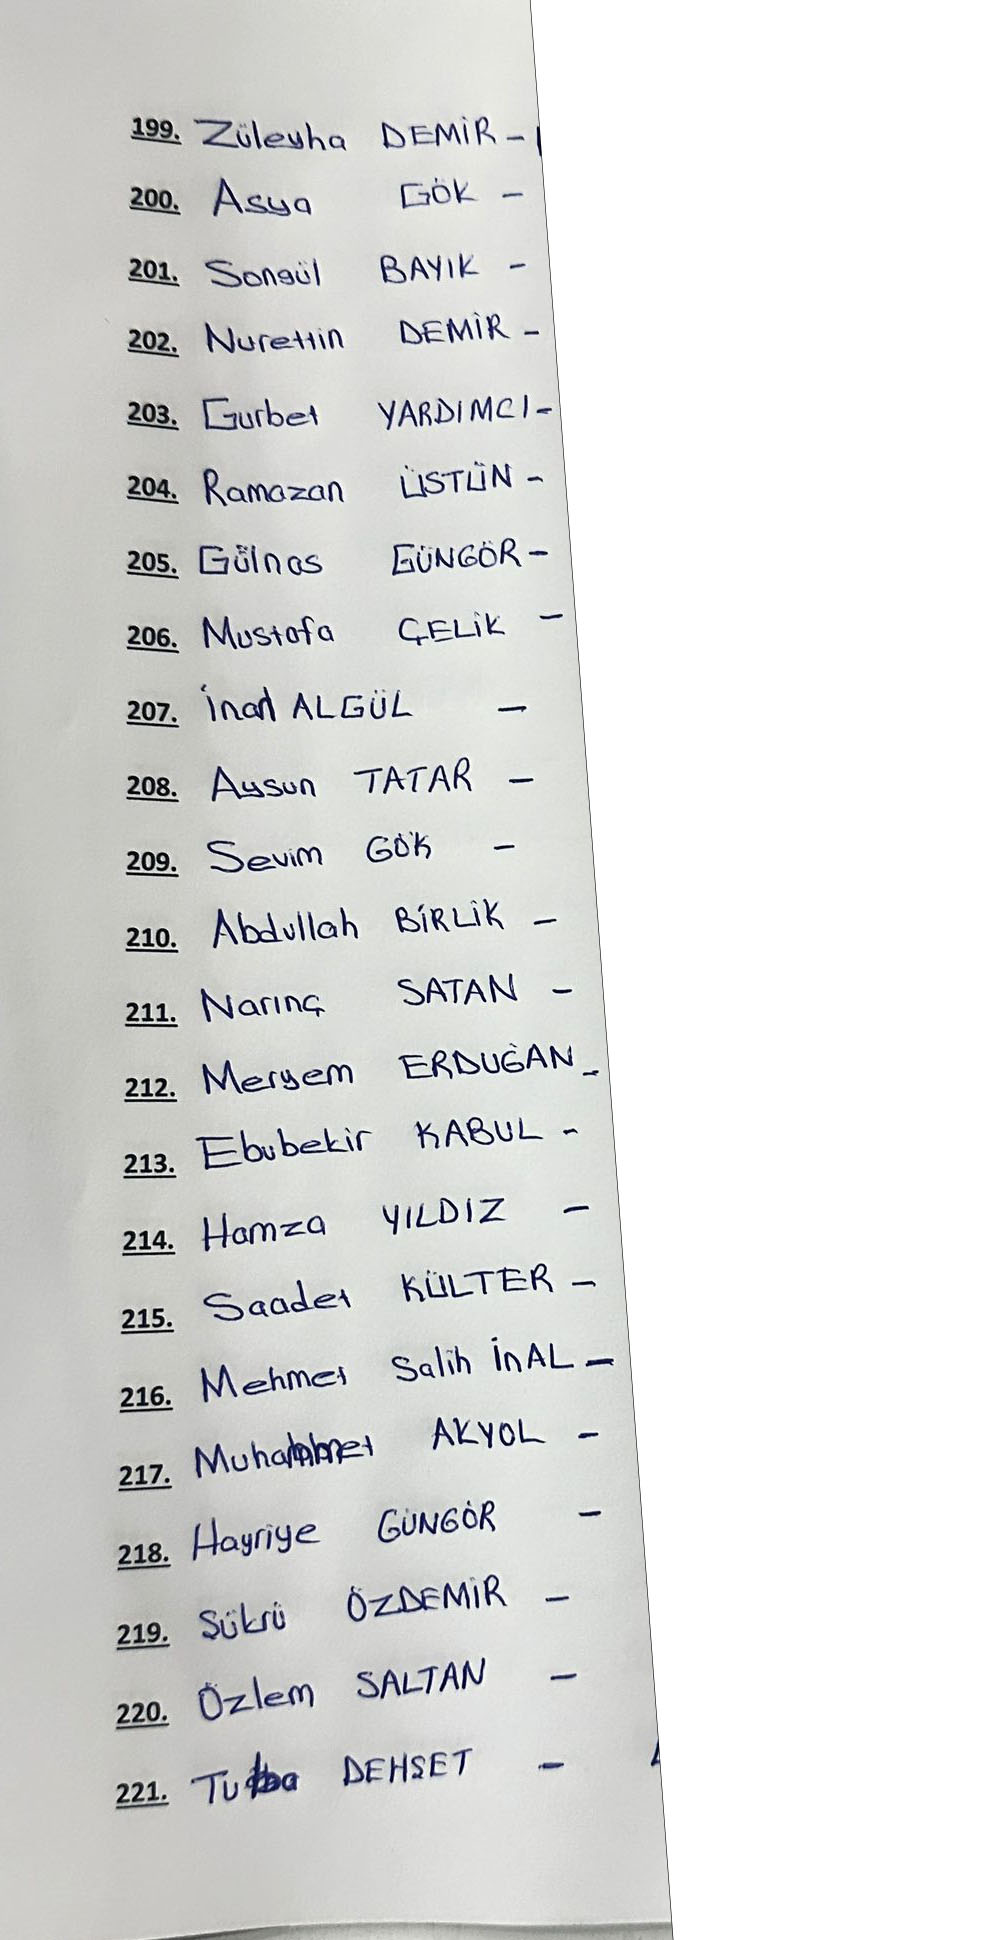 199. Züleyha DEMİR -
200. Asya GÖK -
201. Songül BAYIK -
202. Nurettin DEMİR -
203. Gurbet YARDIMCI -
204. Ramazan ÜSTÜN -
205. Gülnas GÜNGÖR -
206. Mustafa ÇELİK -
207. İnan ALGÜL -
208. Aysun TATAR -
209. Sevim GÖK -
210. Abdullah BİRLİK -
211. Narınç SATAN -
212. Meryem ERDUĞAN -
213. Ebubekir KABUL -
214. Hamza YILDIZ -
215. Saadet KÜLTER -
216. Mehmet Salih İnAL -
217. Muhammet AKYOL -
218. Hayriye GÜNGÖR -
219. Şükrü ÖZDEMİR -
220. Özlem SALTAN -
221. DEHŞET -